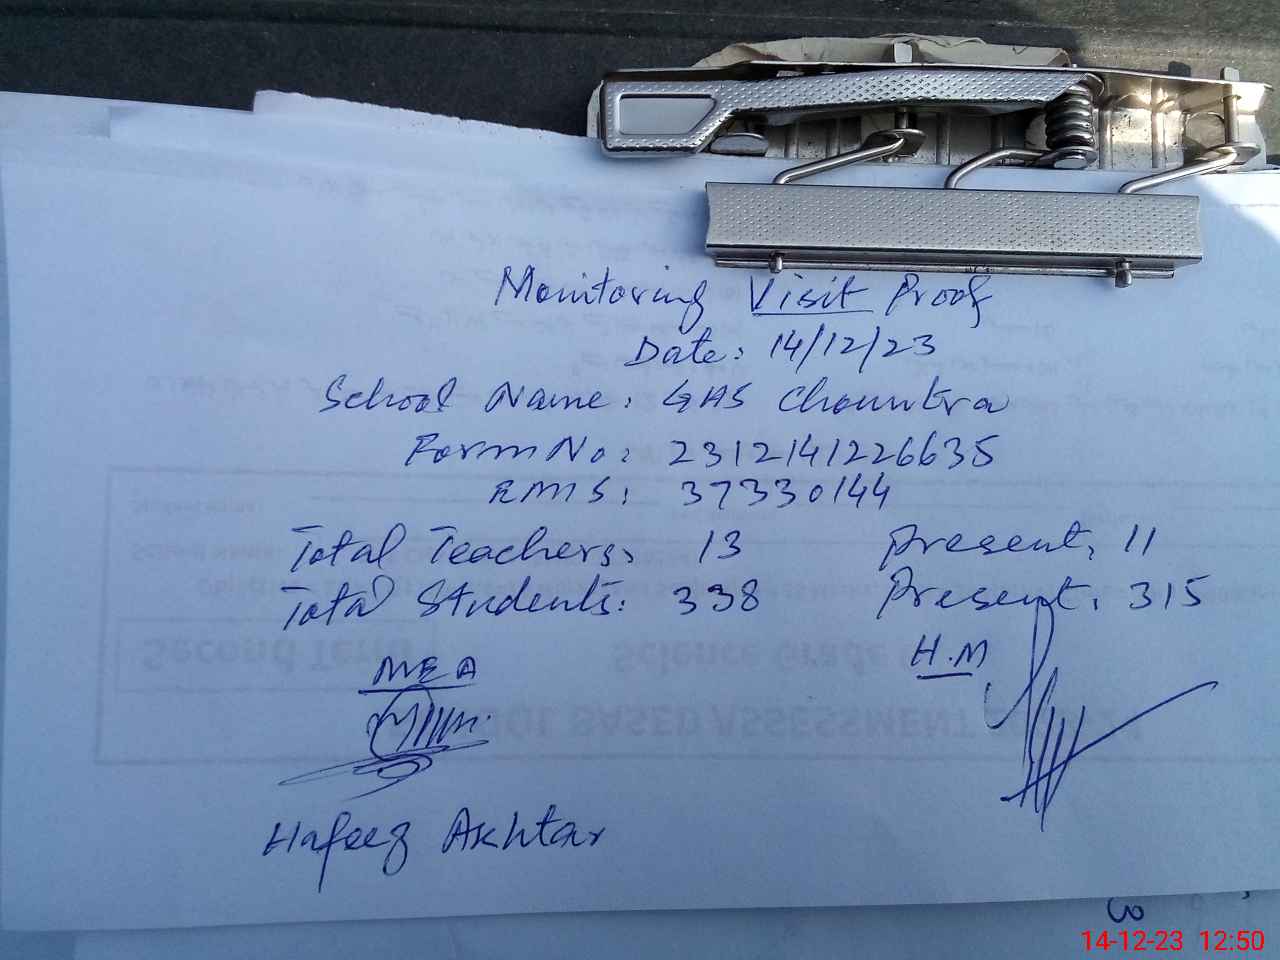 Monitoring Visit Proof
Date: 14/12/23
School Name: GHS Chountra
Form No: 2312141226635
EMIS: 37330144
Total Teachers: 13 Present: 11
Total Students: 338 Present: 315
MEA H.M
Hafeez Akhtar
3
14-12-23 12:50